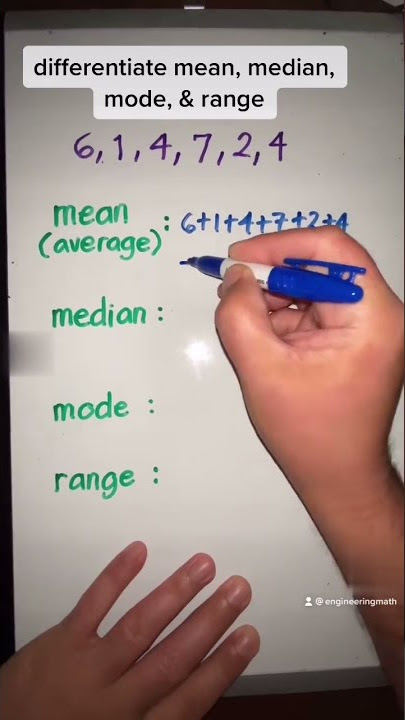 differentiate mean, median,
mode, & range
6, 1, 4, 7, 2, 4
mean : 6+1+4+7+2+4
(average)
median :
mode :
range :
@engineeringmath